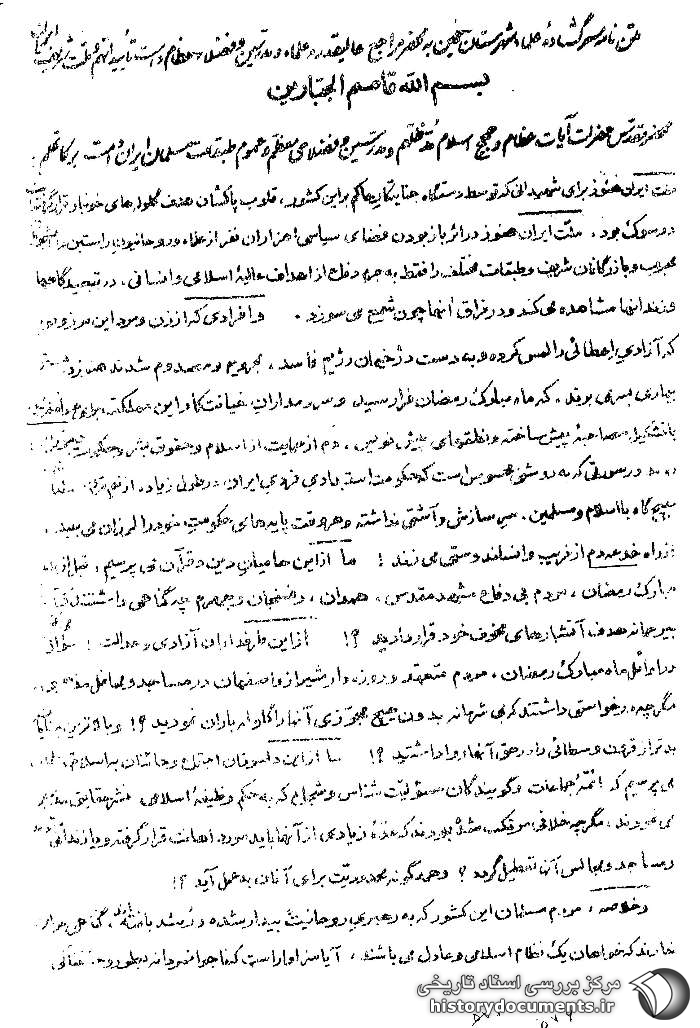 متن نامه سرگشاده علماء شهرستان خمین به محضر مراجع عالیقدر و علماء و مدرسین و فضلاء عظام دامت تأییداتهم و ملت شریف ایران
بسم الله قاصم الجبارین
محضر مقدس حضرات آیات عظام و حجج اسلام و مدرسین و فضلای معظم و عموم طبقات ملت مسلمان ایران دامت برکاتهم
ملت ایران هنوز برای شهیدانی که توسط دستگاه جنایتکار حاکم بر این کشور، قلوب پاکشان هدف گلوله‌های خونبار قرار گرفت
در سوگ بود. ملت ایران هنوز در اثر باز بودن فضای سیاسی! هزاران نفر از علماء و روحانیون راستین و
محبوب و بازرگانان شریف و طبقات مختلف را فقط به جرم دفاع از اهداف عالیهٔ اسلامی و انسانی، در تبعیدگاهها
و زندانها مشاهده می‌کند و در فراق آنها چون شمع می‌سوزد. و افرادی که از زن و مرد این مرز و بوم
که آزادی اعطائی را لمس کرده و به دست دژخیمان رژیم فاسد، مجروح و مصدوم شدند هنوز در بستر
بیماری بسر می‌برند، که ماه مبارک رمضان فرا رسید و سردمداران خیانت کار این مملکت
با تشکیل مصاحبهٔ پیش ساخته و نطقهای پیش نویس، دم از حمایت از اسلام و حقوق بشر و حکومت
در صورتی که به روشنی محسوس است که حکومت استبدادی فردی ایران در طول زیاده از نیم قرن
هیچ گاه با اسلام و مسلمین، سر سازش و آشتی نداشته و هر وقت پایه‌های حکومت خود را لرزان می‌بیند،
از راه خدعه دم از فریب و افسانه دوستی می‌زند! ما از این حامیان دین و قرآن می‌پرسیم، قبل از ماه
مبارک رمضان، مردم بی دفاع مشهد مقدس، همدان، رفسنجان و جهرم چه گناهی داشتند که
بیرحمانه هدف آتشبارهای مخوف خود قرار دادید؟! از این طرفداران آزادی و عدالت!
در اوائل ماه مبارک رمضان، مردم متعهد و روزه دار شیراز و اصفهان در مساجد و محافل
مگر چه درخواستی داشتند که بی شرمانه بدون هیچ مجوزی آنها را گلوله باران نمودید؟! و با
بدتر از قرون وسطائی را در حق آنها روا داشتید؟! ما از این دلسوزان اجتماع و حافظان به اسلام
می‌پرسیم که ائمهٔ جماعات و گویندگان مسئولیت شناس و شجاع که به حکم وظیفهٔ اسلامی حقایقی
می‌نمودند، مگر چه خلافی مرتکب شده بودند که عدهٔ زیادی از آنها باید مورد اهانت قرار گرفته و یا زندانی
و مساجد و مجالس آنان تعطیل گردد؟ و همه گونه محدودیت برای آنان به عمل آید؟!
و خلاصه، مردم مسلمان این کشور که به رهبری روحانیت بیدار شده و رشد یافته‌اند، گناهی
ندارند که خواهان یک نظام اسلامی و عادل می‌باشند، آیا سزاوار است که ناجوانمردانه
مرکز بررسی اسناد تاریخی
historydocuments.ir